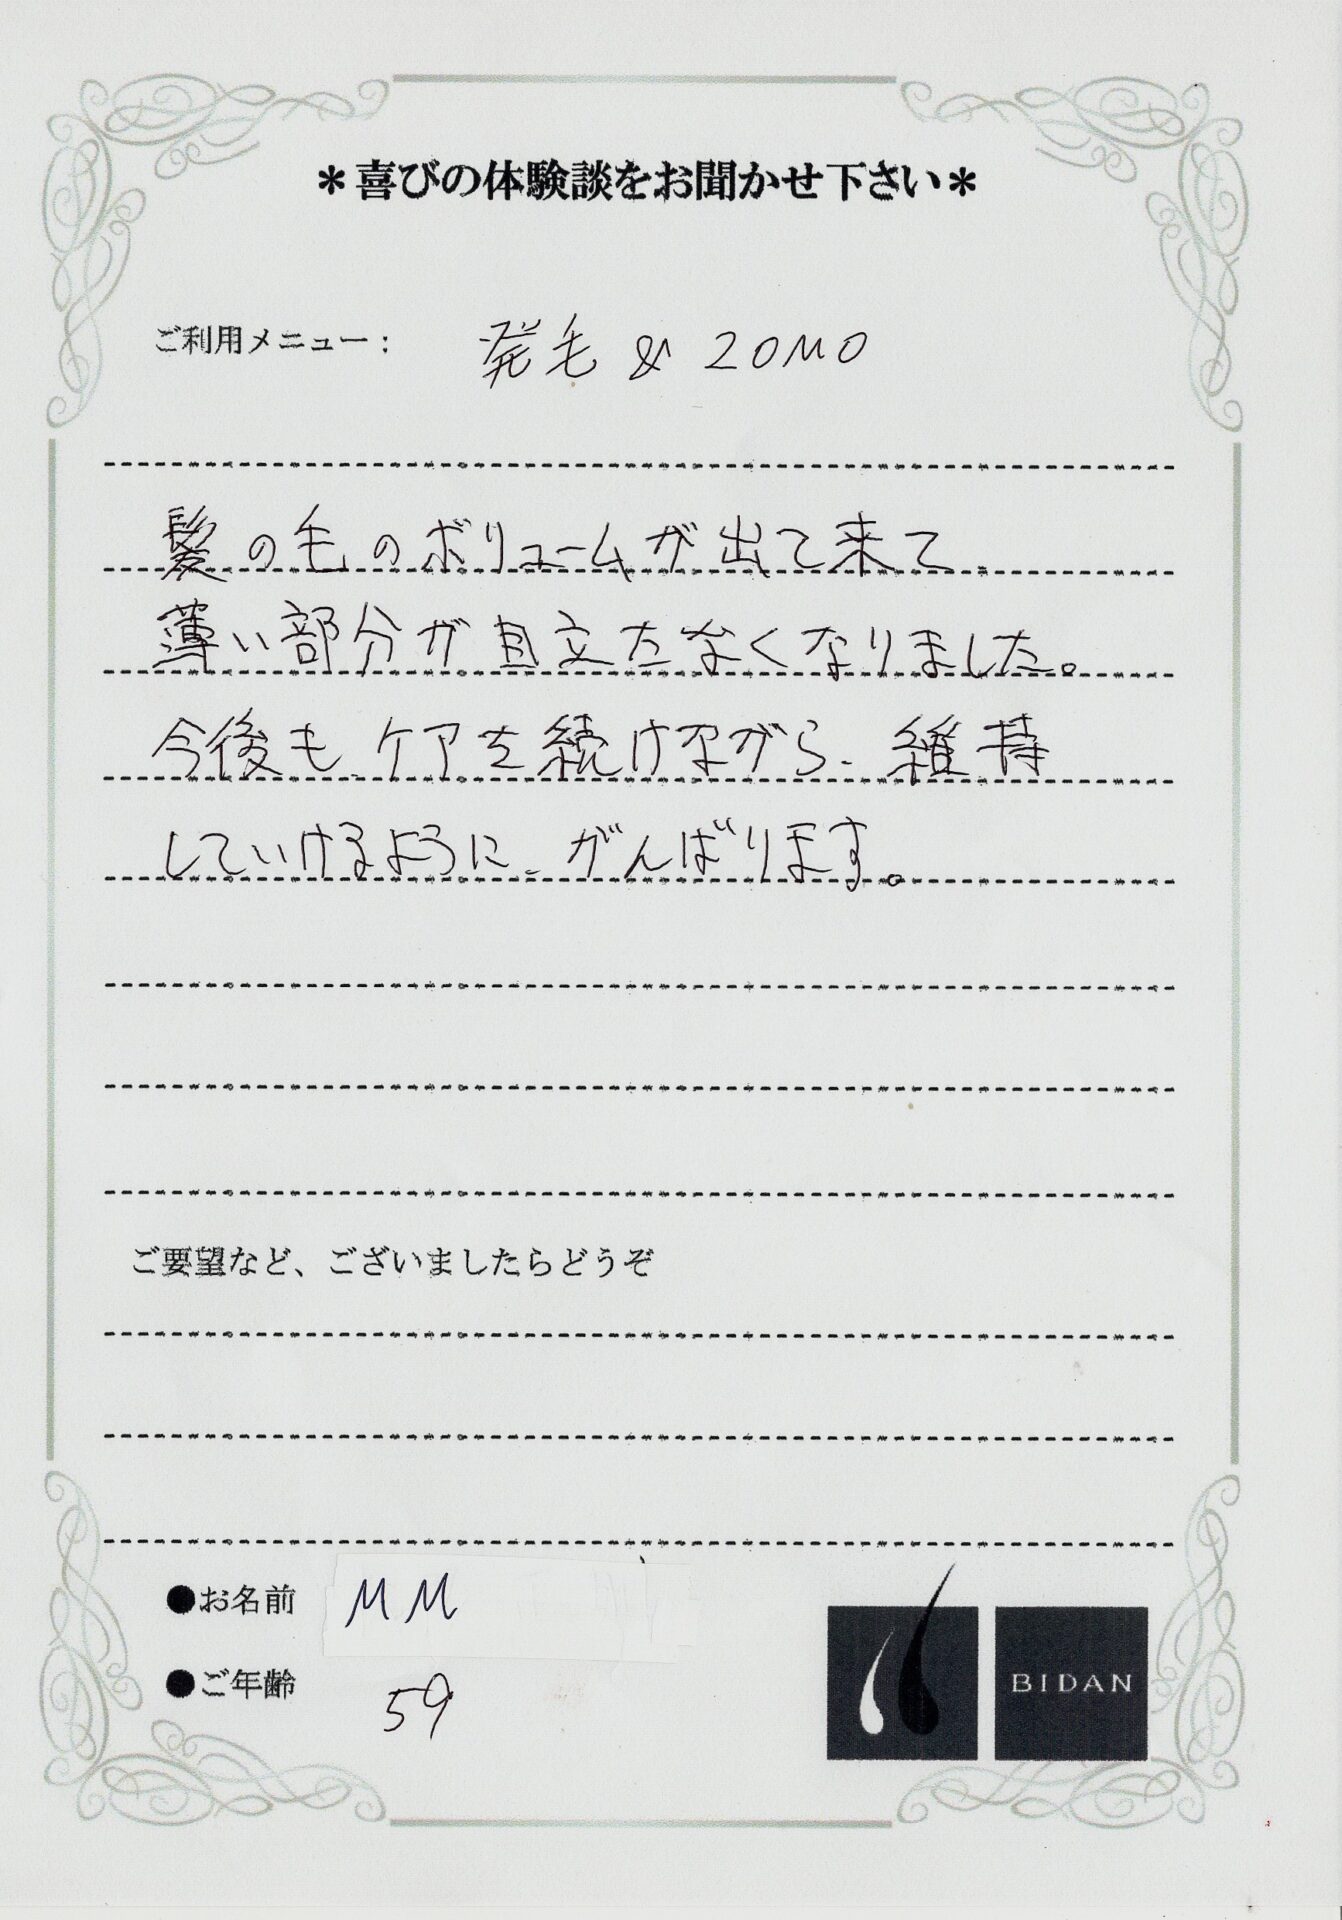 ＊喜びの体験談をお聞かせ下さい＊
ご利用メニュー： 発毛 & ZOMO
髪の毛のボリュームが出て来て、
薄い部分が目立たなくなりました。
今後も、ケアを続けながら、維持
していけるように、がんばります。
ご要望など、ございましたらどうぞ
●お名前 MM
●ご年齢 59
BIDAN